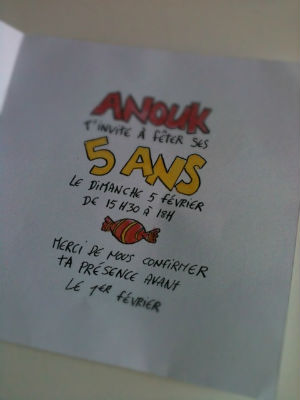 ANOUK
T'INVITE À FÊTER SES
5 ANS
LE DIMANCHE 5 FÉVRIER
DE 15H30 À 18H
MERCI DE NOUS CONFIRMER
TA PRÉSENCE AVANT
LE 1ER FÉVRIER